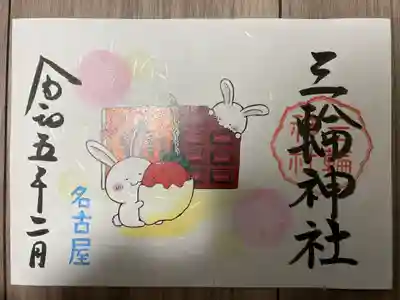 三輪神社
名古屋
令和五年二月